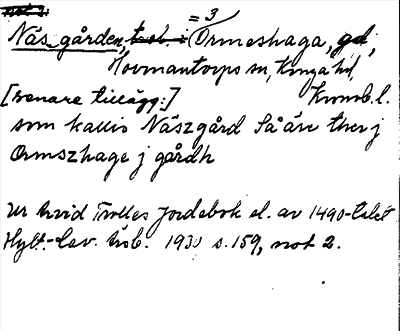 not 2.
= 3
Näs gården, Ormeshaga, gd,
Hovmantorps sn, Konga hd,
[senare tillägg:] Kronob. l.
som kallis Näszgård Så äre ther j
Ormszhage j gårdh
Ur Arvid Trolles Jordebok sl. av 1490-talet
Hylt.-Cav. Åsb. 1930 s. 159, not 2.